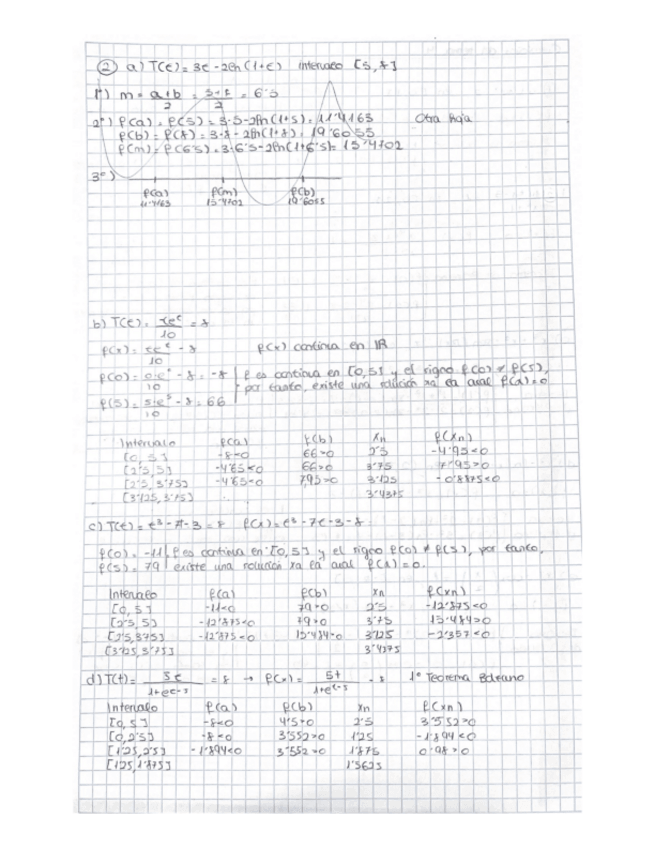 ② a) T(t) = 3t - 2ln(1+t) intervalo [5, 8]
1º) m = a+b/2 = 5+8/2 = 6'5
2º) f(a) = f(5) = 3·5-2ln(1+5) = 11'4163 Otra hoja
f(b) = f(8) = 3·8-2ln(1+8) = 19'6055
f(m) = f(6'5) = 3·6'5-2ln(1+6'5) = 15'4702
3º)
f(a) f(m) f(b)
11'4163 15'4702 19'6055
b) T(t) = te^t/10 = 8
f(x) = te^t/10 - 8 f(x) continua en IR
f(0) = 0·e^0/10 - 8 = -8 f es continua en [0,5] y el signo f(0) ≠ f(5),
por tanto, existe una solución xa la cual f(a)=0
f(5) = 5·e^5/10 - 8 = 66
Intervalo f(a) f(b) xn f(xn)
[0, 5] -8<0 66>0 2'5 -4'95<0
[2'5, 5] -4'65<0 66>0 3'75 7'95>0
[2'5, 3'75] -4'65<0 7,95>0 3'125 -0'8875<0
[3'125, 3'75] 3'4375
c) T(t) = t³-7t-3 = 8 f(x) = t³-7t-3-8
f(0) = -11 f es continua en [0,5] y el signo f(0) ≠ f(5), por tanto,
f(5) = 79 existe una solución xa la cual f(a)=0.
Intervalo f(a) f(b) xn f(xn)
[0, 5] -11<0 79>0 2'5 -12'875<0
[2'5, 5] -12'875<0 79>0 3'75 15'484>0
[2'5, 3'75] -12'875<0 15'484>0 3'125 -2'357<0
[3'125, 3'75] 3'4375
d) T(t) = 5t/1+e^t-3 = 8 → f(x) = 5t/1+e^t-3 - 8 1º Teorema Bolzano
Intervalo f(a) f(b) xn f(xn)
[0, 5] -8<0 4'5>0 2'5 3'552>0
[0, 2'5] -8<0 3'552>0 1'25 -1'894<0
[1'25, 2'5] -1'894<0 3'552>0 1'875 0'98>0
[1'25, 1'875] 1'5625